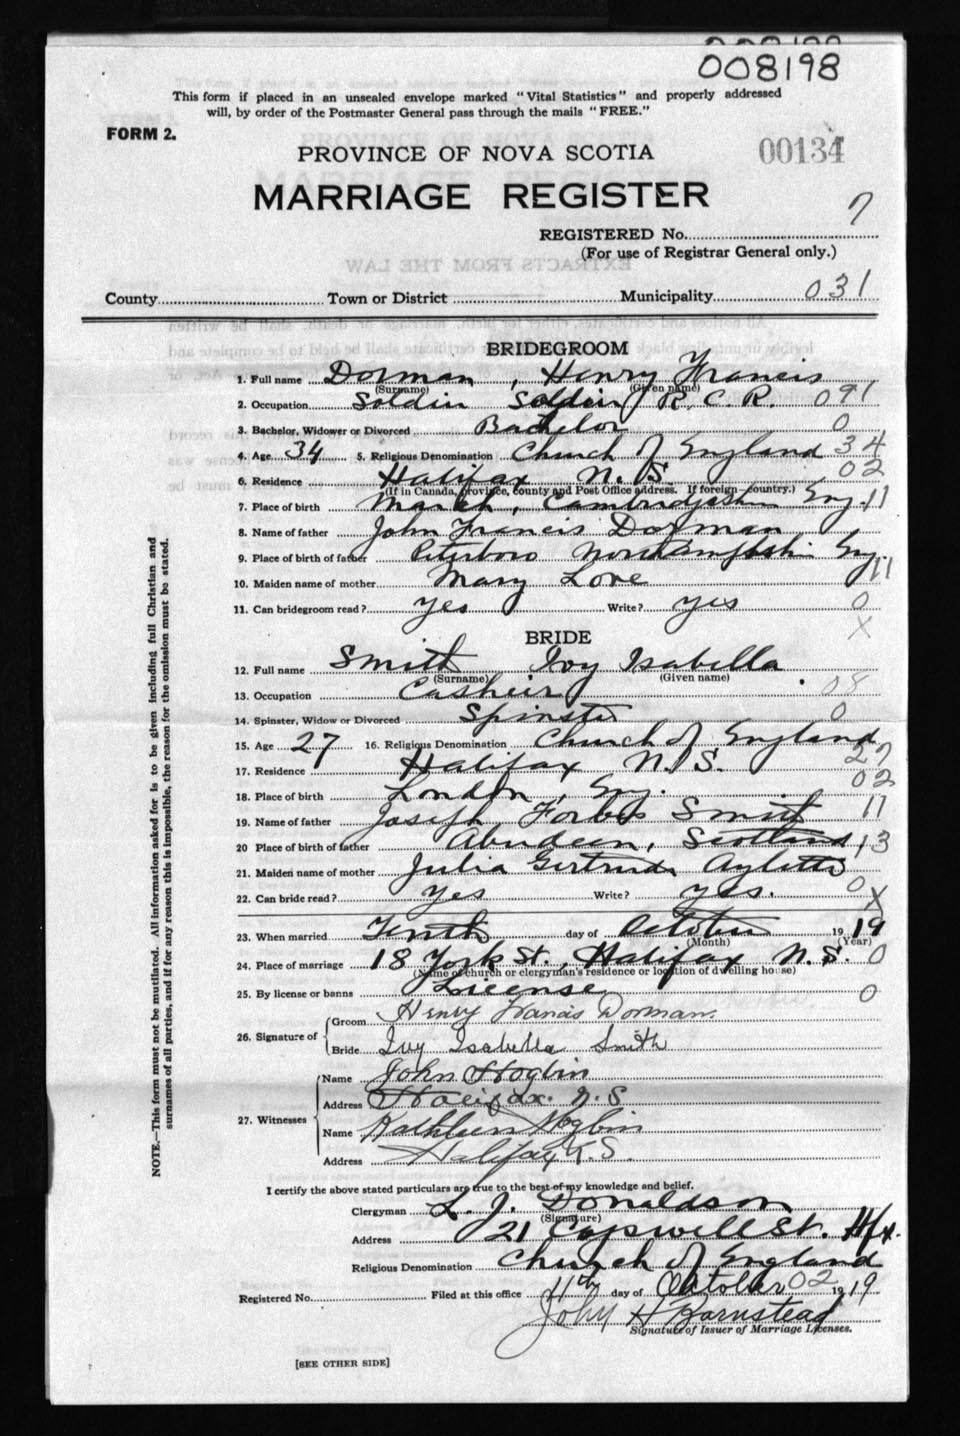 008198
This form if placed in an unsealed envelope marked "Vital Statistics" and properly addressed
will, by order of the Postmaster General pass through the mails "FREE."
FORM 2.
PROVINCE OF NOVA SCOTIA
00134
MARRIAGE REGISTER
REGISTERED No. 7
(For use of Registrar General only.)
County Town or District Municipality 031
BRIDEGROOM
1. Full name Dorman, Henry Francis
(Surname) (Given name)
2. Occupation Soldier R.C.R. 091
3. Bachelor, Widower or Divorced Bachelor 0
4. Age 34 5. Religious Denomination Church of England 34
6. Residence Halifax N.S. 02
(If in Canada, province, county and Post Office address. If foreign—country.)
7. Place of birth March, Cambridgeshire Eng. 11
8. Name of father John Francis Dorman
9. Place of birth of father Peterboro Northamptonshire Eng. 11
10. Maiden name of mother Mary Love
11. Can bridegroom read? yes Write? yes 0
X
BRIDE
12. Full name Smith Ivy Isabella
(Surname) (Given name)
13. Occupation Casheir 08
14. Spinster, Widow or Divorced Spinster 0
15. Age 27 16. Religious Denomination Church of England
27
17. Residence Halifax N.S. 02
18. Place of birth London, Eng. 11
19. Name of father Joseph Forbes Smith
20 Place of birth of father Aberdeen, Scotland 13
21. Maiden name of mother Julia Gertrude
22. Can bride read? yes Write? yes. 0 X
23. When married Tenth day of October 19 19
(Month) (Year)
24. Place of marriage 18 York St., Halifax N.S. 0
(Name of church or clergyman's residence or location of dwelling house)
25. By license or banns License 0
26. Signature of
Groom Henry Francis Dorman
Bride Ivy Isabella Smith
27. Witnesses
Name John Hoglin
Address Halifax. N.S
Name Kathleen Hoglin
Address Halifax N.S.
I certify the above stated particulars are true to the best of my knowledge and belief.
Clergyman L. J. Donaldson
(Signature)
Address 21 St. Hfx.
Religious Denomination Church of England
Registered No. Filed at this office 11th day of October 02 19 19
John H Barnstead
Signature of Issuer of Marriage Licenses.
[SEE OTHER SIDE]
NOTE.—This form must not be mutilated. All information asked for is to be given including full Christian and
surnames of all parties, and if for any reason this is impossible, the reason for the omission must be stated.